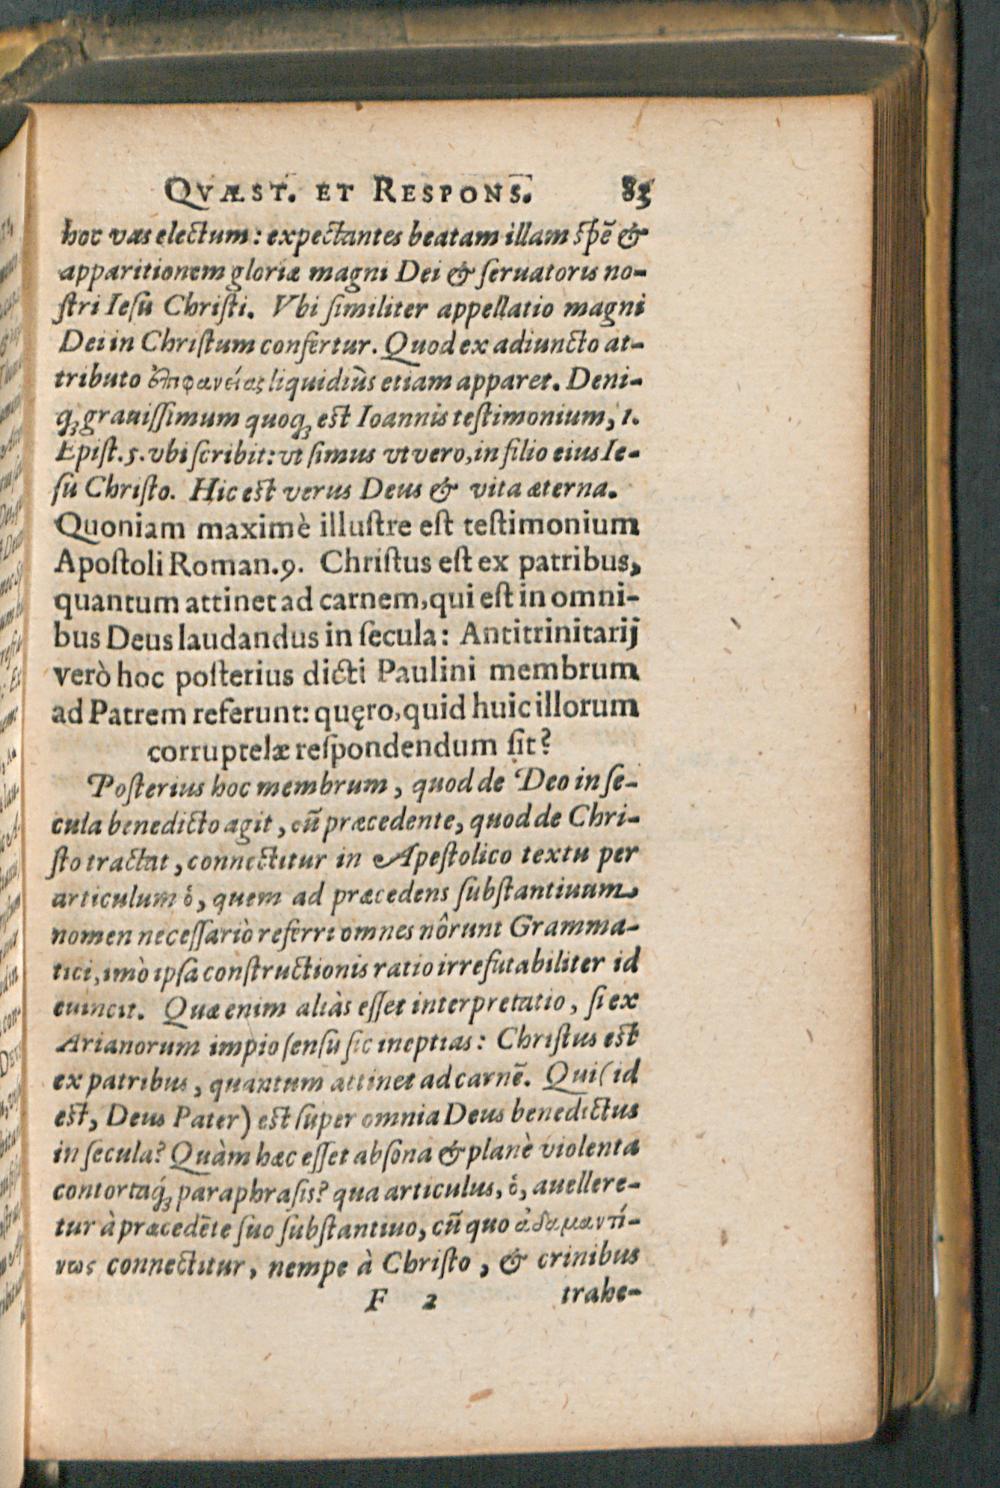 QVÆST. ET RESPONS. 83
hoc vas electum: expectantes beatam illam spẽ &
apparitionem gloriæ magni Dei & seruatoris no-
stri Iesu Christi. Vbi similiter appellatio magni
Dei in Christum confertur. Quod ex adiuncto at-
tributo ἐπιφανείας liquidiùs etiam apparet. Deni-
q; grauissimum quoq; est Ioannis testimonium, 1.
Epist. 5. vbi scribit: vt simus vt vero, in filio eius Ie-
su Christo. Hic est verus Deus & vita æterna.
Quoniam maximè illustre est testimonium
Apostoli Roman. 9. Christus est ex patribus,
quantum attinet ad carnem, qui est in omni-
bus Deus laudandus in secula: Antitrinitarij
verò hoc posterius dicti Paulini membrum
ad Patrem referunt: quęro, quid huic illorum
corruptelæ respondendum sit?
Posterius hoc membrum, quod de Deo in se-
cula benedicto agit, cũ præcedente, quod de Chri-
sto tractat, connectitur in Apostolico textu per
articulum ὁ, quem ad præcedens substantiuum
nomen necessariò referri omnes nôrunt Gramma-
tici, imò ipsa constructionis ratio irrefutabiliter id
euincit. Quæ enim aliàs esset interpretatio, si ex
Arianorum impio sensu sic ineptias: Christus est
ex patribus, quantum attinet ad carnẽ. Qui (id
est, Deus Pater) est super omnia Deus benedictus
in secula? Quàm hæc esset absona & planè violenta
contortaq́; paraphrasis? qua articulus, ὁ, auellere-
tur à præcedẽte suo substantiuo, cũ quo ἀδαμαντί-
νως connectitur, nempe à Christo, & crinibus
F 2 trahe-